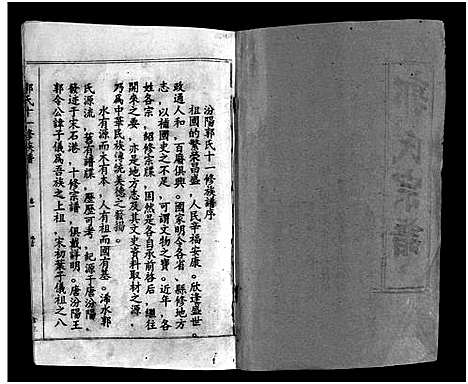 郭氏宗譜
汾陽郭氏十一修族譜序
祖國的繁榮昌盛，人民幸福安康。欣逢盛世。
政通人和，百廢俱興。國家明令各省、縣修地方
志，以補國史之不足，可謂文物之寶。近年，各
姓各宗，紹修宗牒，固然是各自承前啓后，繼往
開來之要，亦是地方志及其文史資料取材之源，
乃爲中華民族傳統美德之發揚。
水有源而木有本，人有祖而國有基。浠水郭
氏源流，舊有譜牒，歷歷可考，紀源于唐汾陽、
發迹于宋石港，十修宗譜，俱載詳明。唐汾陽王
郭令公諱子儀爲吾族之上祖，宋初葉子儀祖之八
郭氏十一修族譜